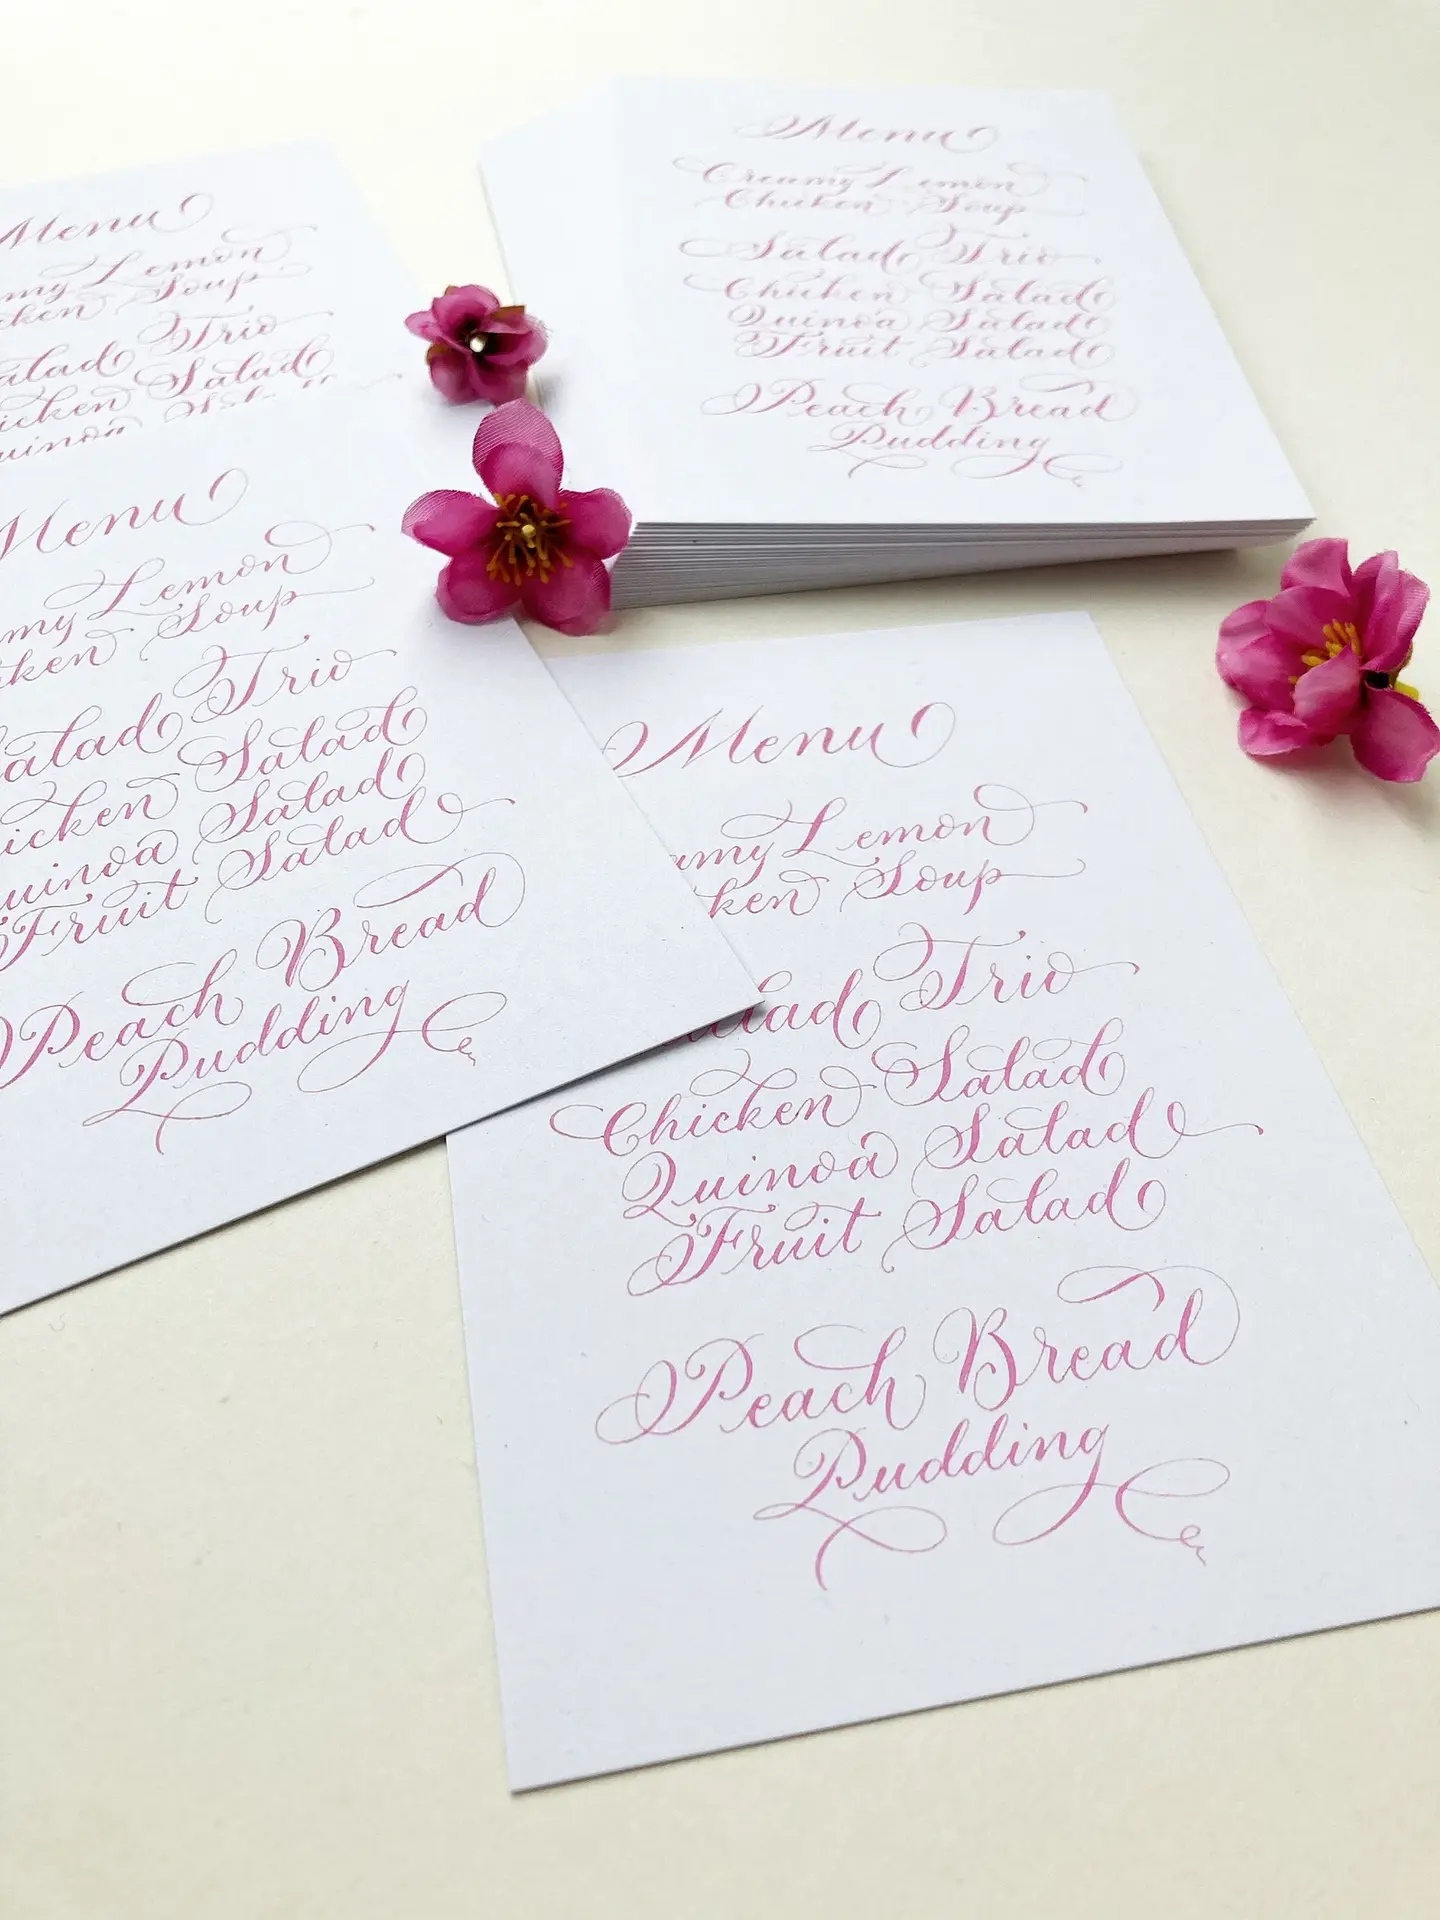 Menu
Creamy Lemon
Chicken Soup
Salad Trio
Chicken Salad
Quinoa Salad
Fruit Salad
Peach Bread
Pudding
Menu
my Lemon
ken Soup
alad Trio
icken Salad
uinoa
Menu
my Lemon
ken Soup
alad Trio
icken Salad
uinoa Salad
Fruit Salad
Peach Bread
Pudding
Menu
amy Lemon
ken Soup
alad Trio
Chicken Salad
Quinoa Salad
Fruit Salad
Peach Bread
Pudding